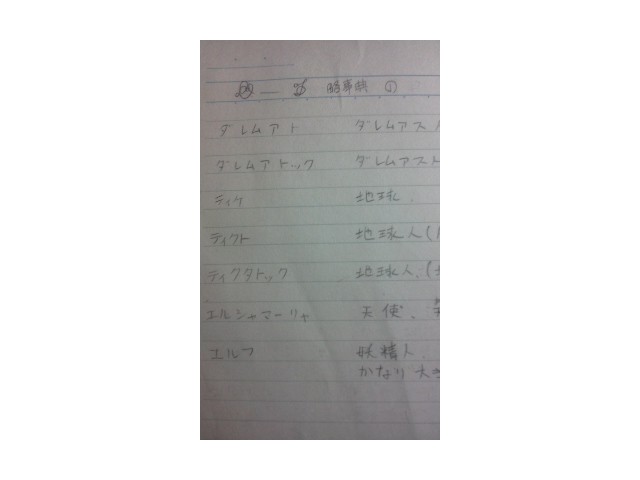 略事典 ①
ダレムアト ダレムアスト
ダレムアトック ダレムアスト
ティケ 地球.
ティクト 地球人(
ティクタトック 地球人.(
エルシャマーリャ 天使.
エルフ 妖精人.
かなり大き